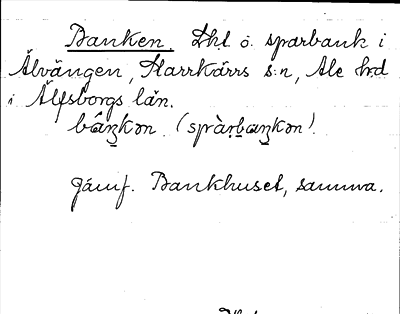 Banken. Lht o. sparbank i
Älvängen, Starrkärrs s:n, Ale hrd
i Älfsborgs län.
bâŋkən. (spàrbaŋkən).
Jämf. Bankhuset, samma.